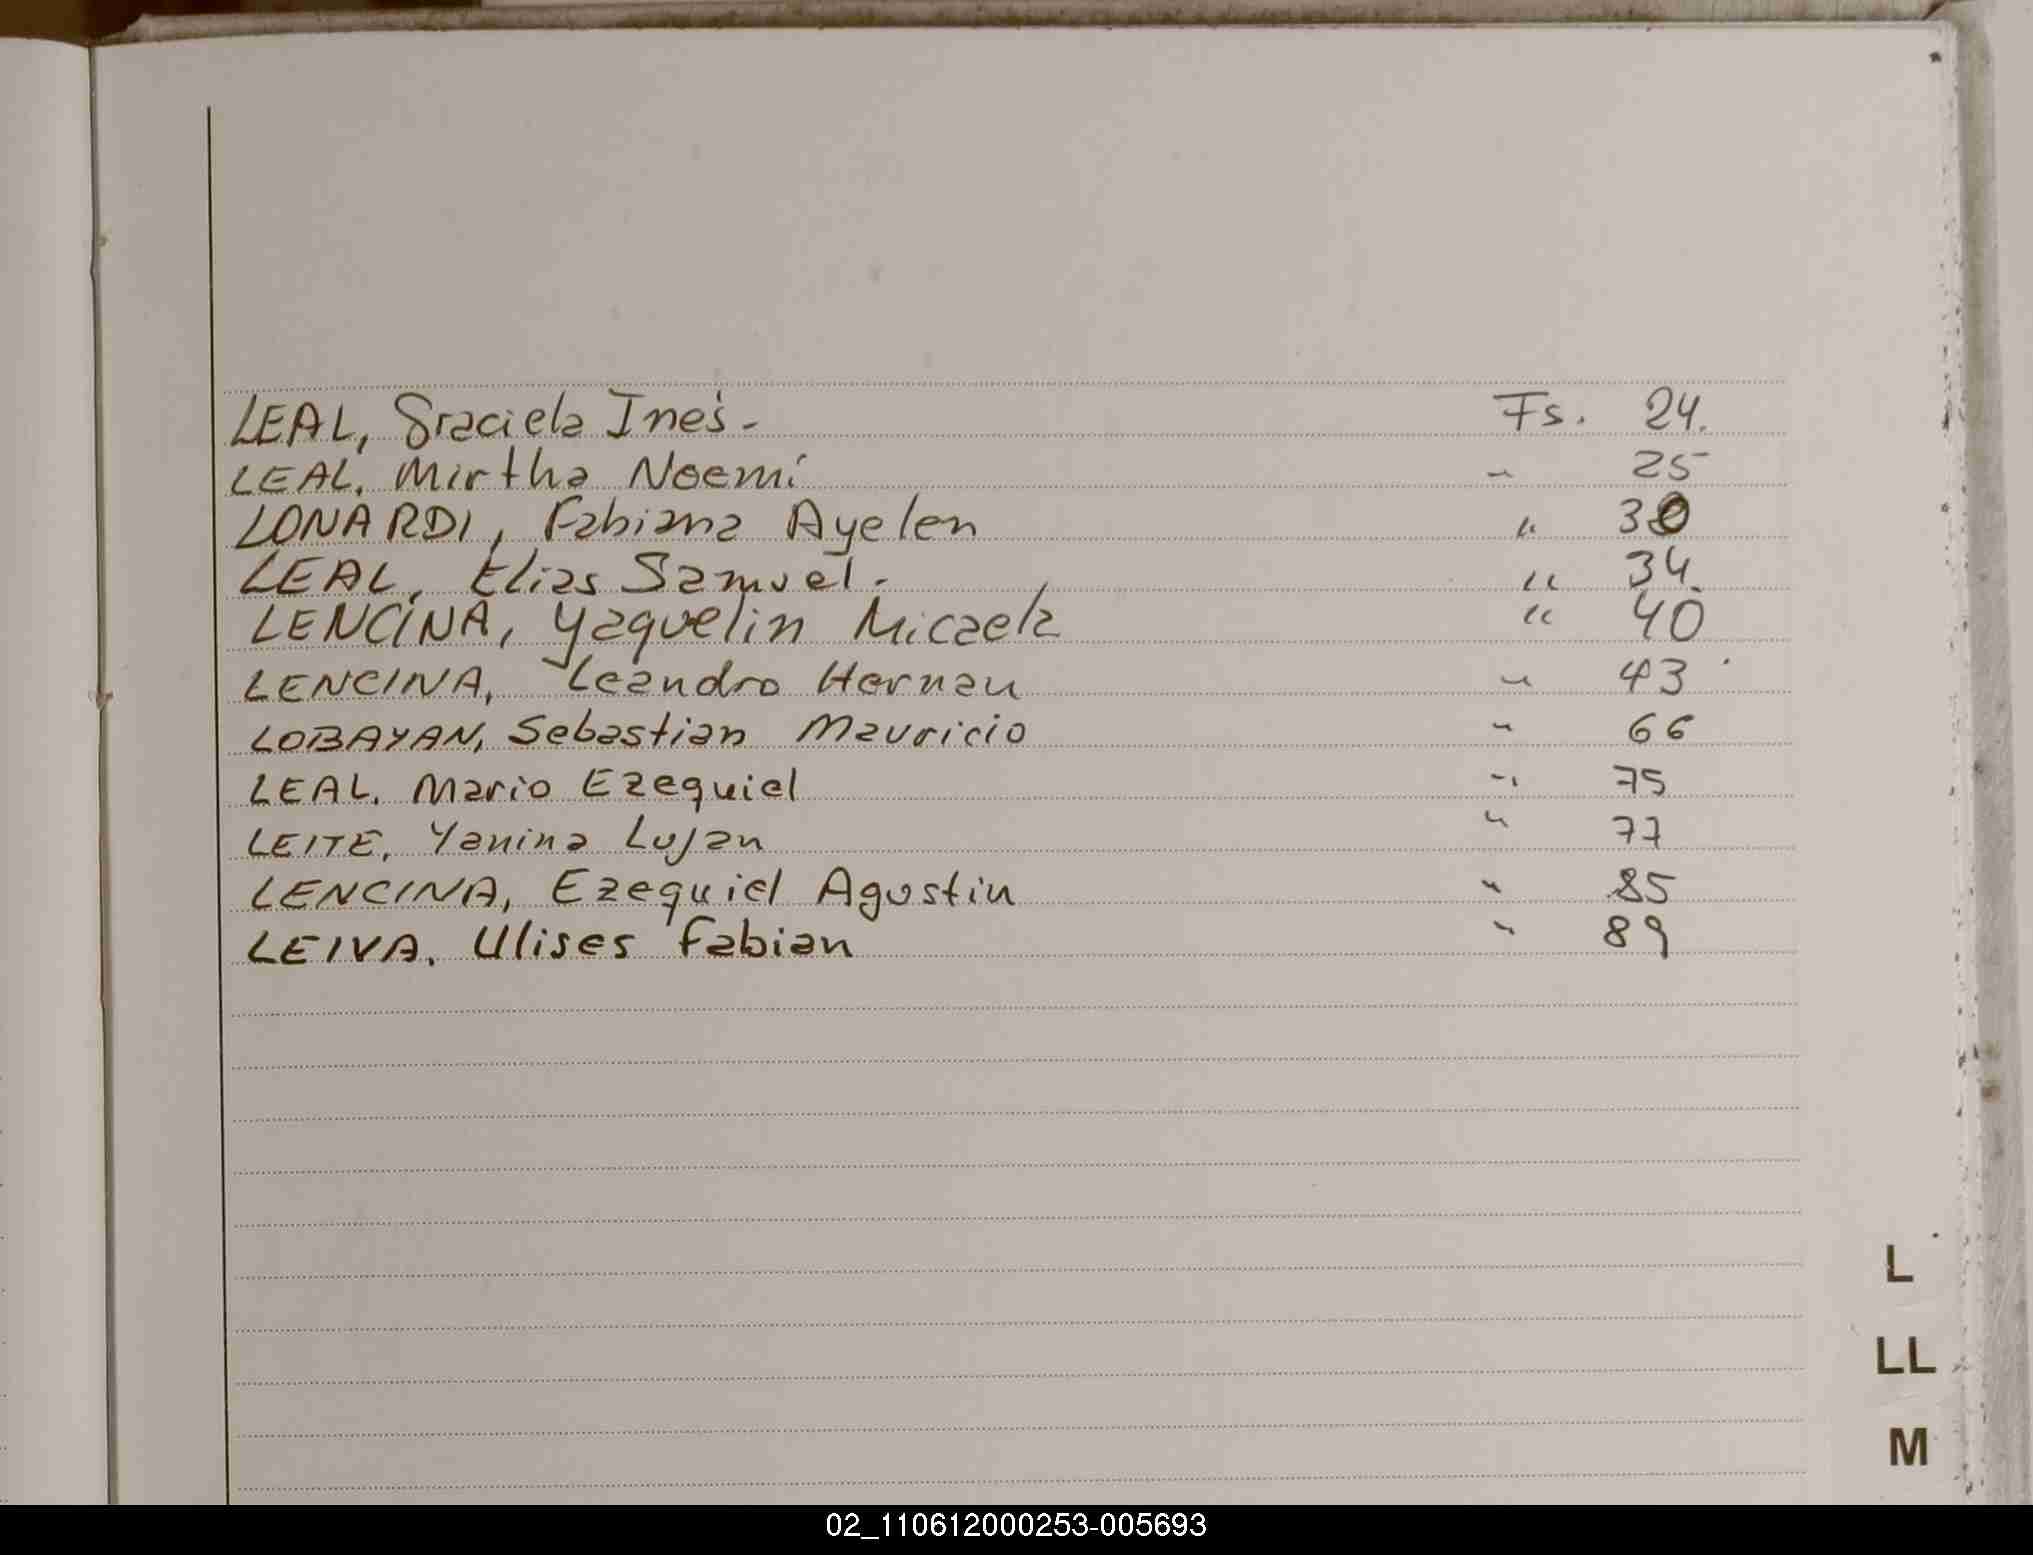 LEAL, Graciela Inés - Fs. 24.
LEAL, Mirtha Noemí " 25
LONARDI, Fabiana Ayelen " 30
LEAL, Elias Samuel. " 34.
LENCINA, Yaquelin Micaela " 40
LENCINA, Leandro Hernan " 43
LOBAYAN, Sebastian Mauricio " 66
LEAL, Mario Ezequiel " 75
LEITE, Yanina Lujan " 77
LENCINA, Ezequiel Agustin " 85
LEIVA, Ulises Fabian " 89
L
LL
M
02_110612000253-005693